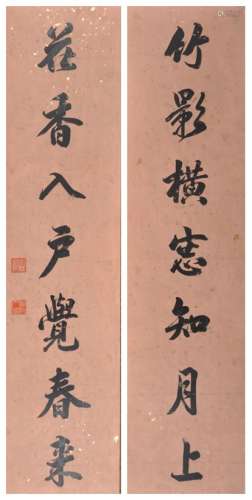 竹影橫窓知月上
花香入戶覺春來